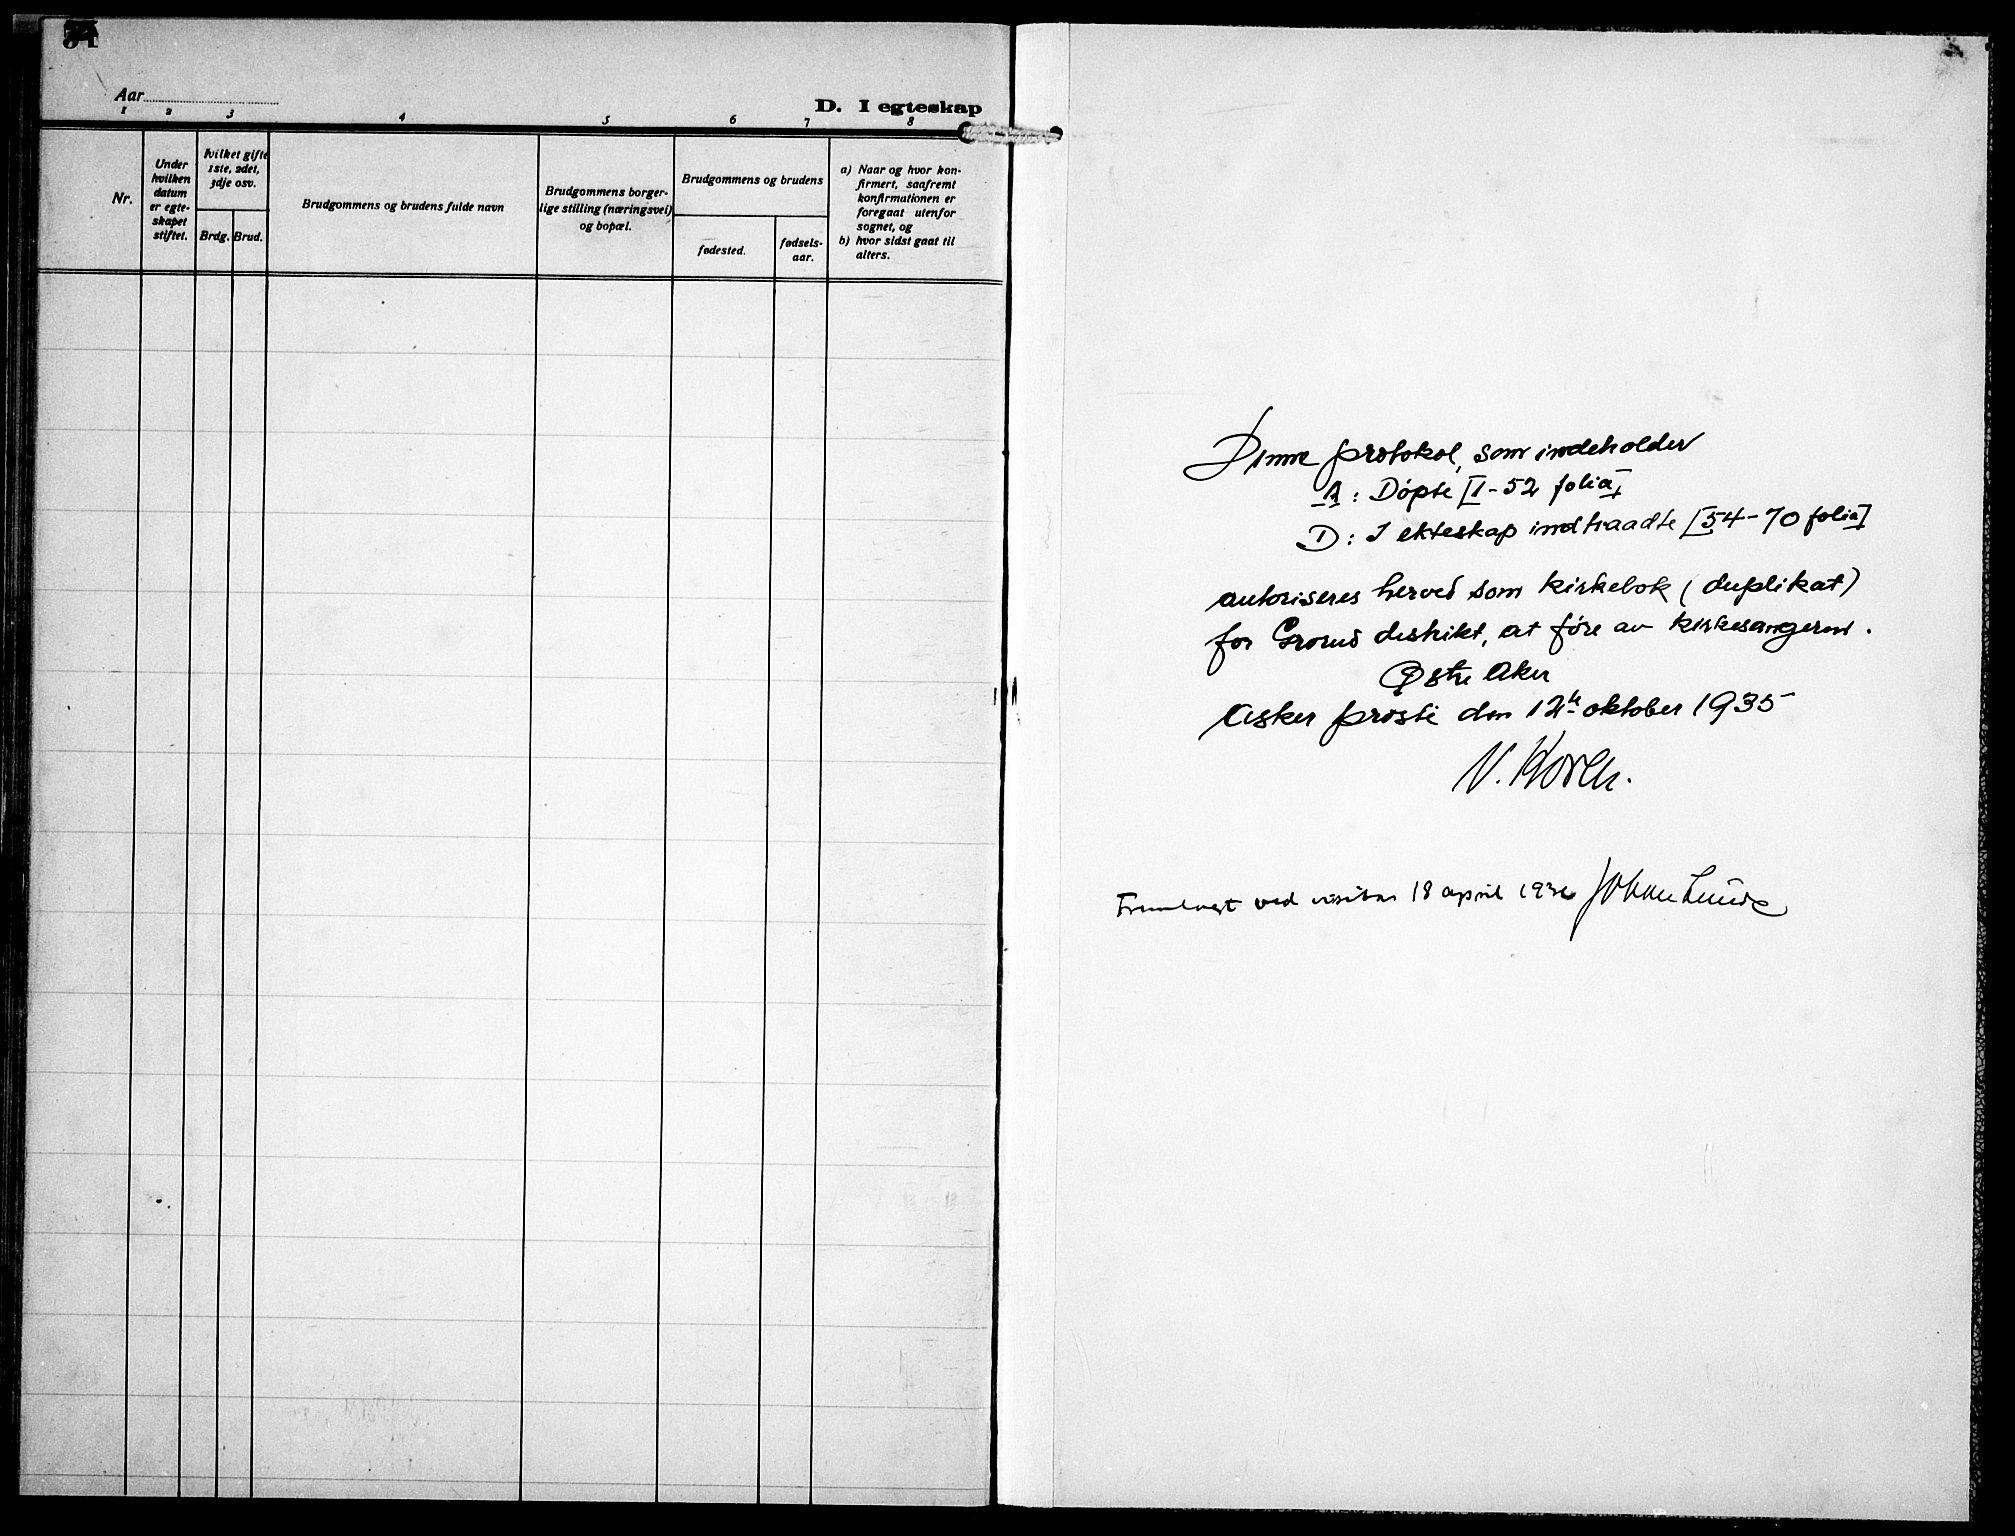 Aar
D. I egteskap
1 2 3 4 5 6 7 8
Nr.
Under
hvilken
datum
er egte-
skapet
stiftet.
hvilket gifte
1ste, 2det,
3dje osv.
Brdg. Brud.
Brudgommens og brudens fulde navn
Brudgommens borger-
lige stilling (næringsvei)
og bopæl.
Brudgommens og brudens
fødested.
fødsels-
aar.
a) Naar og hvor kon-
firmert, saafremt
konfirmationen er
foregaat utenfor
sognet, og
b) hvor sidst gaat til
alters.
Denne protokol, som indeholder
A: Døpte [1-52 folia]
D: I ekteskap indtraadte [54-70 folia]
autoriseres herved som kirkebok (duplikat)
for Grorud distrikt, at føre av kirkesangeren.
Østre Aker
Asker prosti den 12te oktober 1935
V. Koren.
Fremlagt ved visitas 18 april 193 Johan Lunde